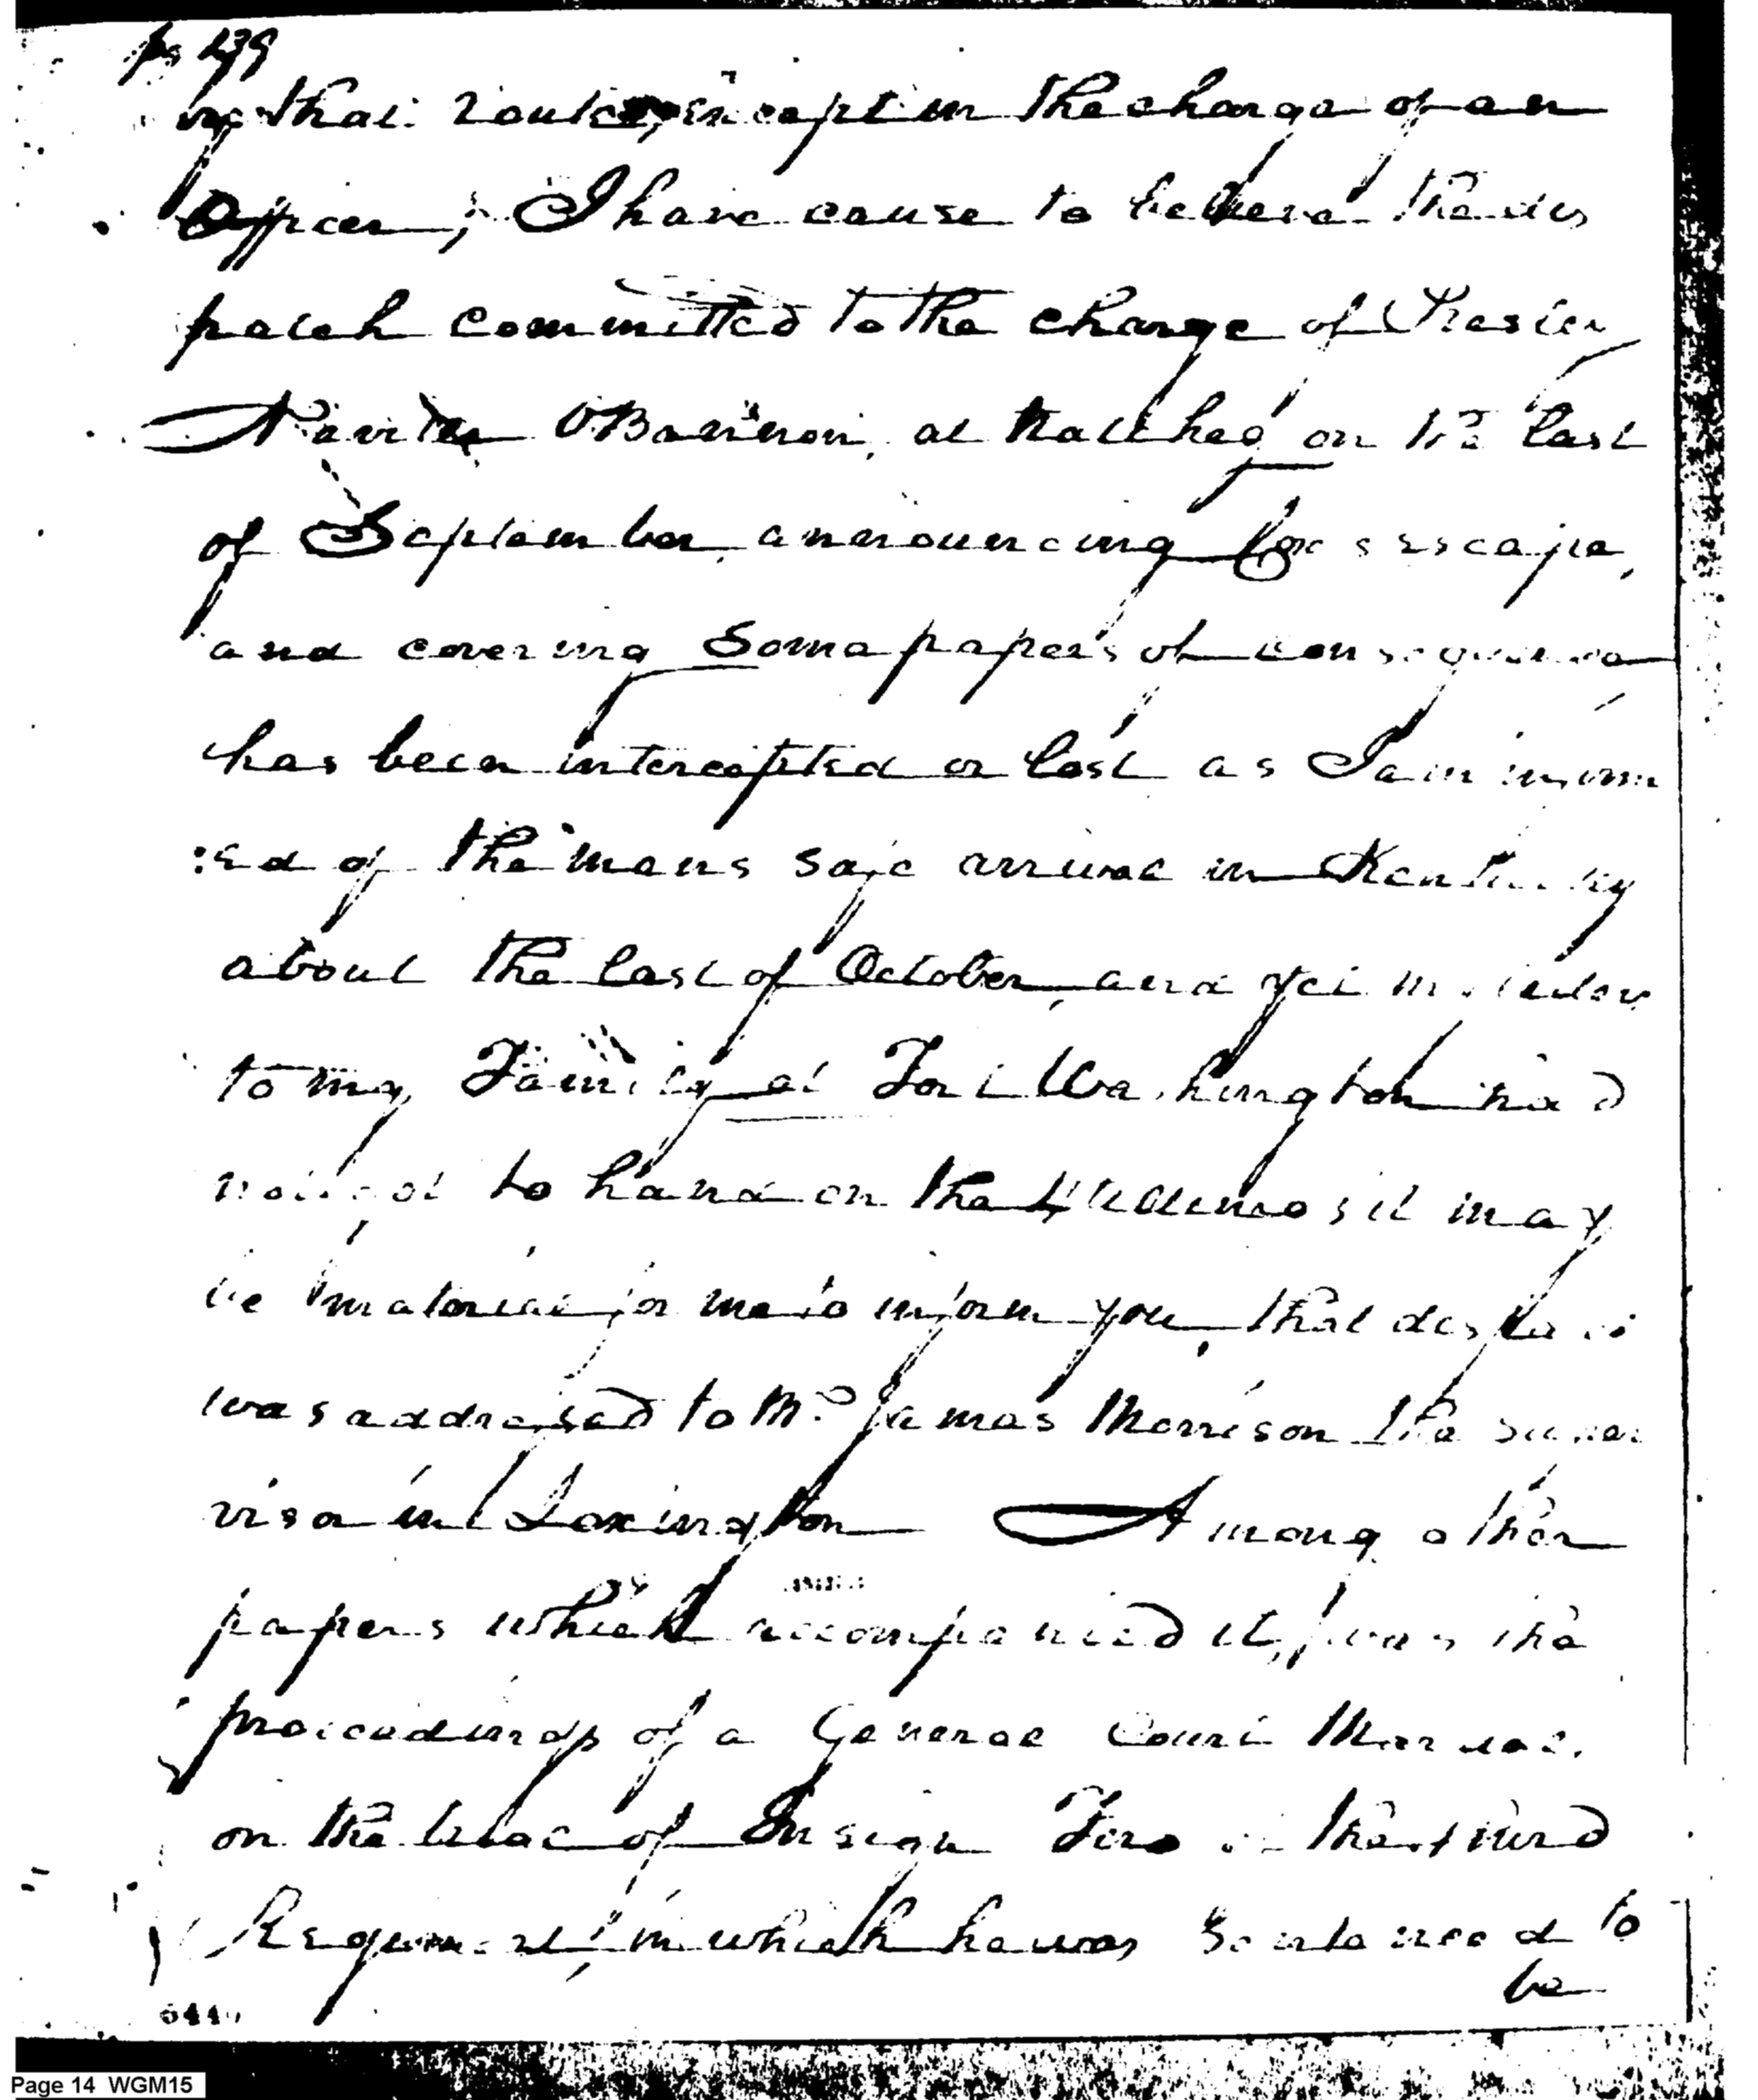 pg 239
by that route, except in the charge of an
Officer; I have cause to believe the dis
patch committed to the charge of Presley
Neville OBannon, at Natchez on the last
of September, announcing escape,
and covering some papers of consequence
has been intercepted or lost as I am inform
:ed of the mans safe arrival in Kentucky
about the last of October, and yet my letter
to my Family at Fort Washington had
not got to hand on the Ultimo; it may
be material for me to inform you, that dispatch
was addressed to Mr. James Morrison the super
visor in Lexington Among other
papers which accompanied it, was the
proceedings of a General Court Martial
on the trial of Ensign the third
Regiment, in which he was sentenced to
be
544
Page 14 WGM15